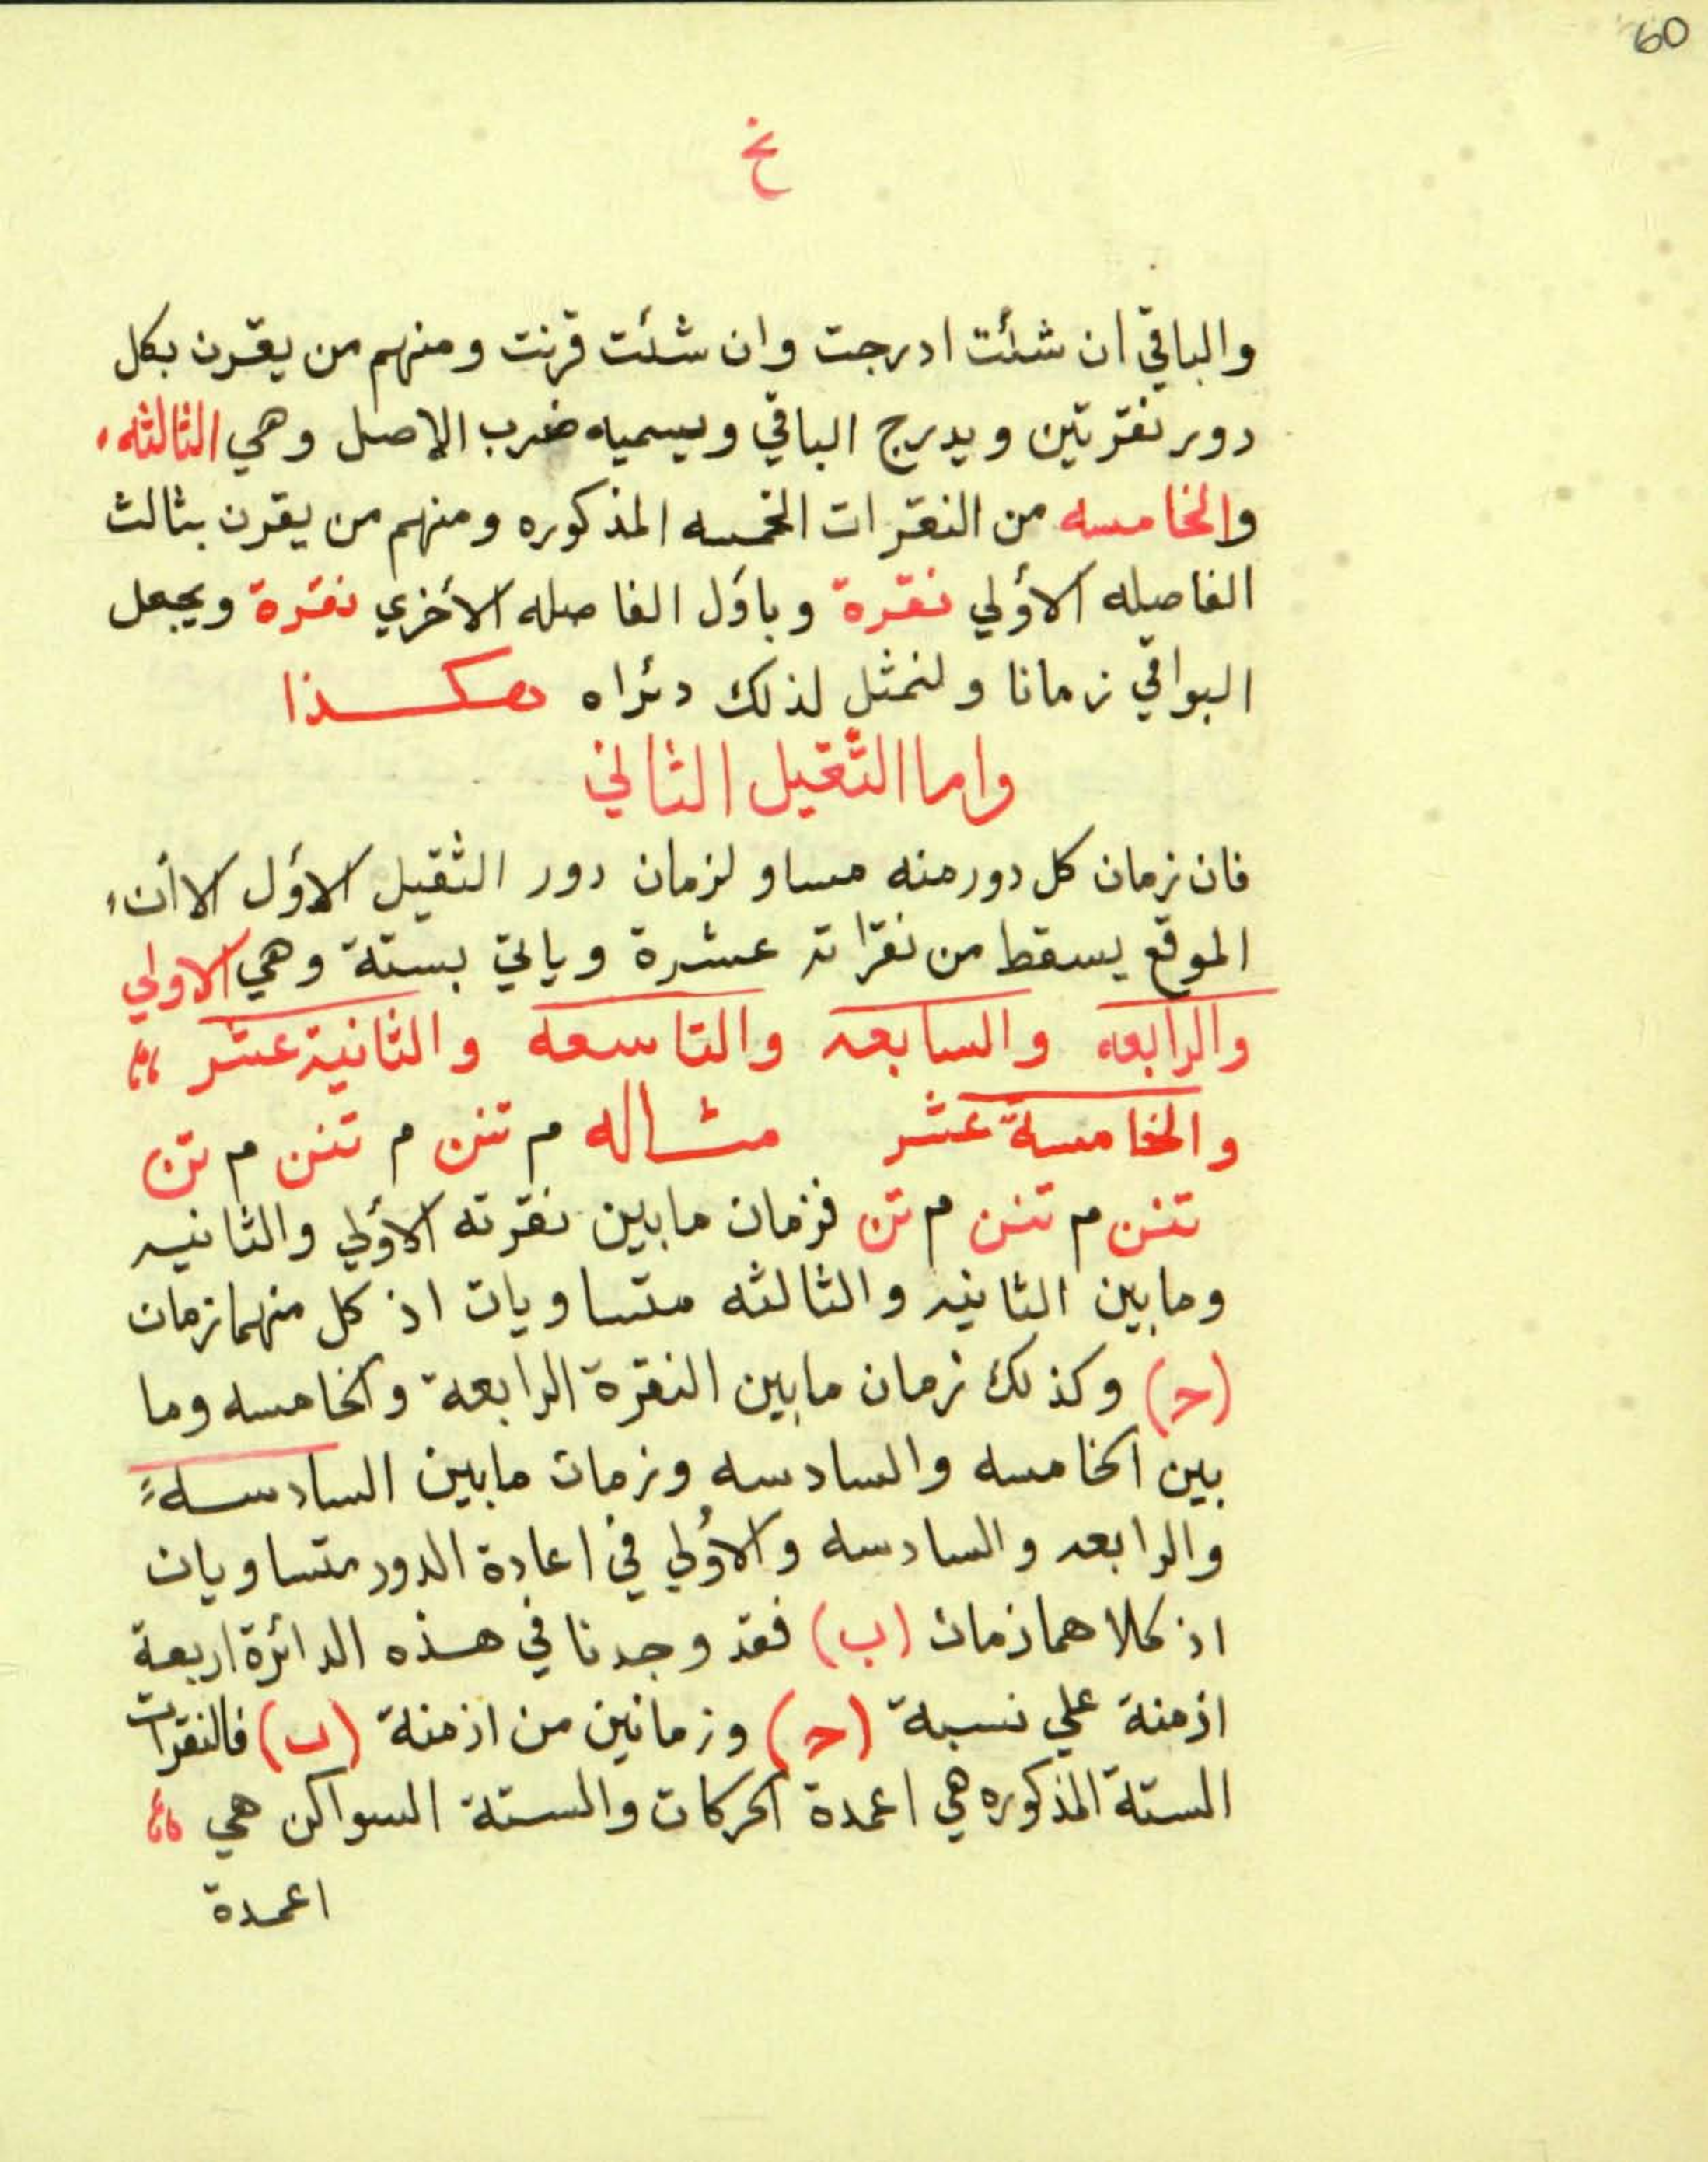 60
نخ
والباقي ان شئت ادرجت وان شئت قرنت ومنهم من يقرن بكل
دور نقرتين ويدرج الباقي ويسميه ضرب الاصل وهي الثالثه
والخامسه من النقرات الخمسه المذكوره ومنهم من يقرن بثالث
الفاصله الأولي نقرة وباؤل الفاصله الأخري نقرة ويجعل
البواقي زمانا ولنمثل لذلك دئراه هكذا
واما الثقيل الثاني
فان زمان كل دور منه مساو لزمان دور الثقيل الاؤل الا أن
الموقع يسقط من نقراته عشرة وياتي بستة وهي الاولي
والرابعه والسابعه والتاسعه والثانية عشر
والخامسة عشر مثاله م تنن م تنن م تن
تنن م تنن م تن فزمان مابين نقرته الأولي والثانيه
ومابين الثانيه والثالثه متساويان اذ كل منهما زمان
(حـ) وكذلك زمان مابين النقرة الرابعة والخامسه وما
بين الخامسه والسادسه وزمان مابين السادسه
والرابعه والسادسه والأولي في اعادة الدور متساويان
اذ كلاهما زمان (ب) فقد وجدنا في هذه الدائرة اربعة
ازمنة علي نسبة (حـ) وزمانين من ازمنة (ب) فالنقرات
الستة المذكوره هي اعمدة الحركات والستة السواكن هي
اعمدة